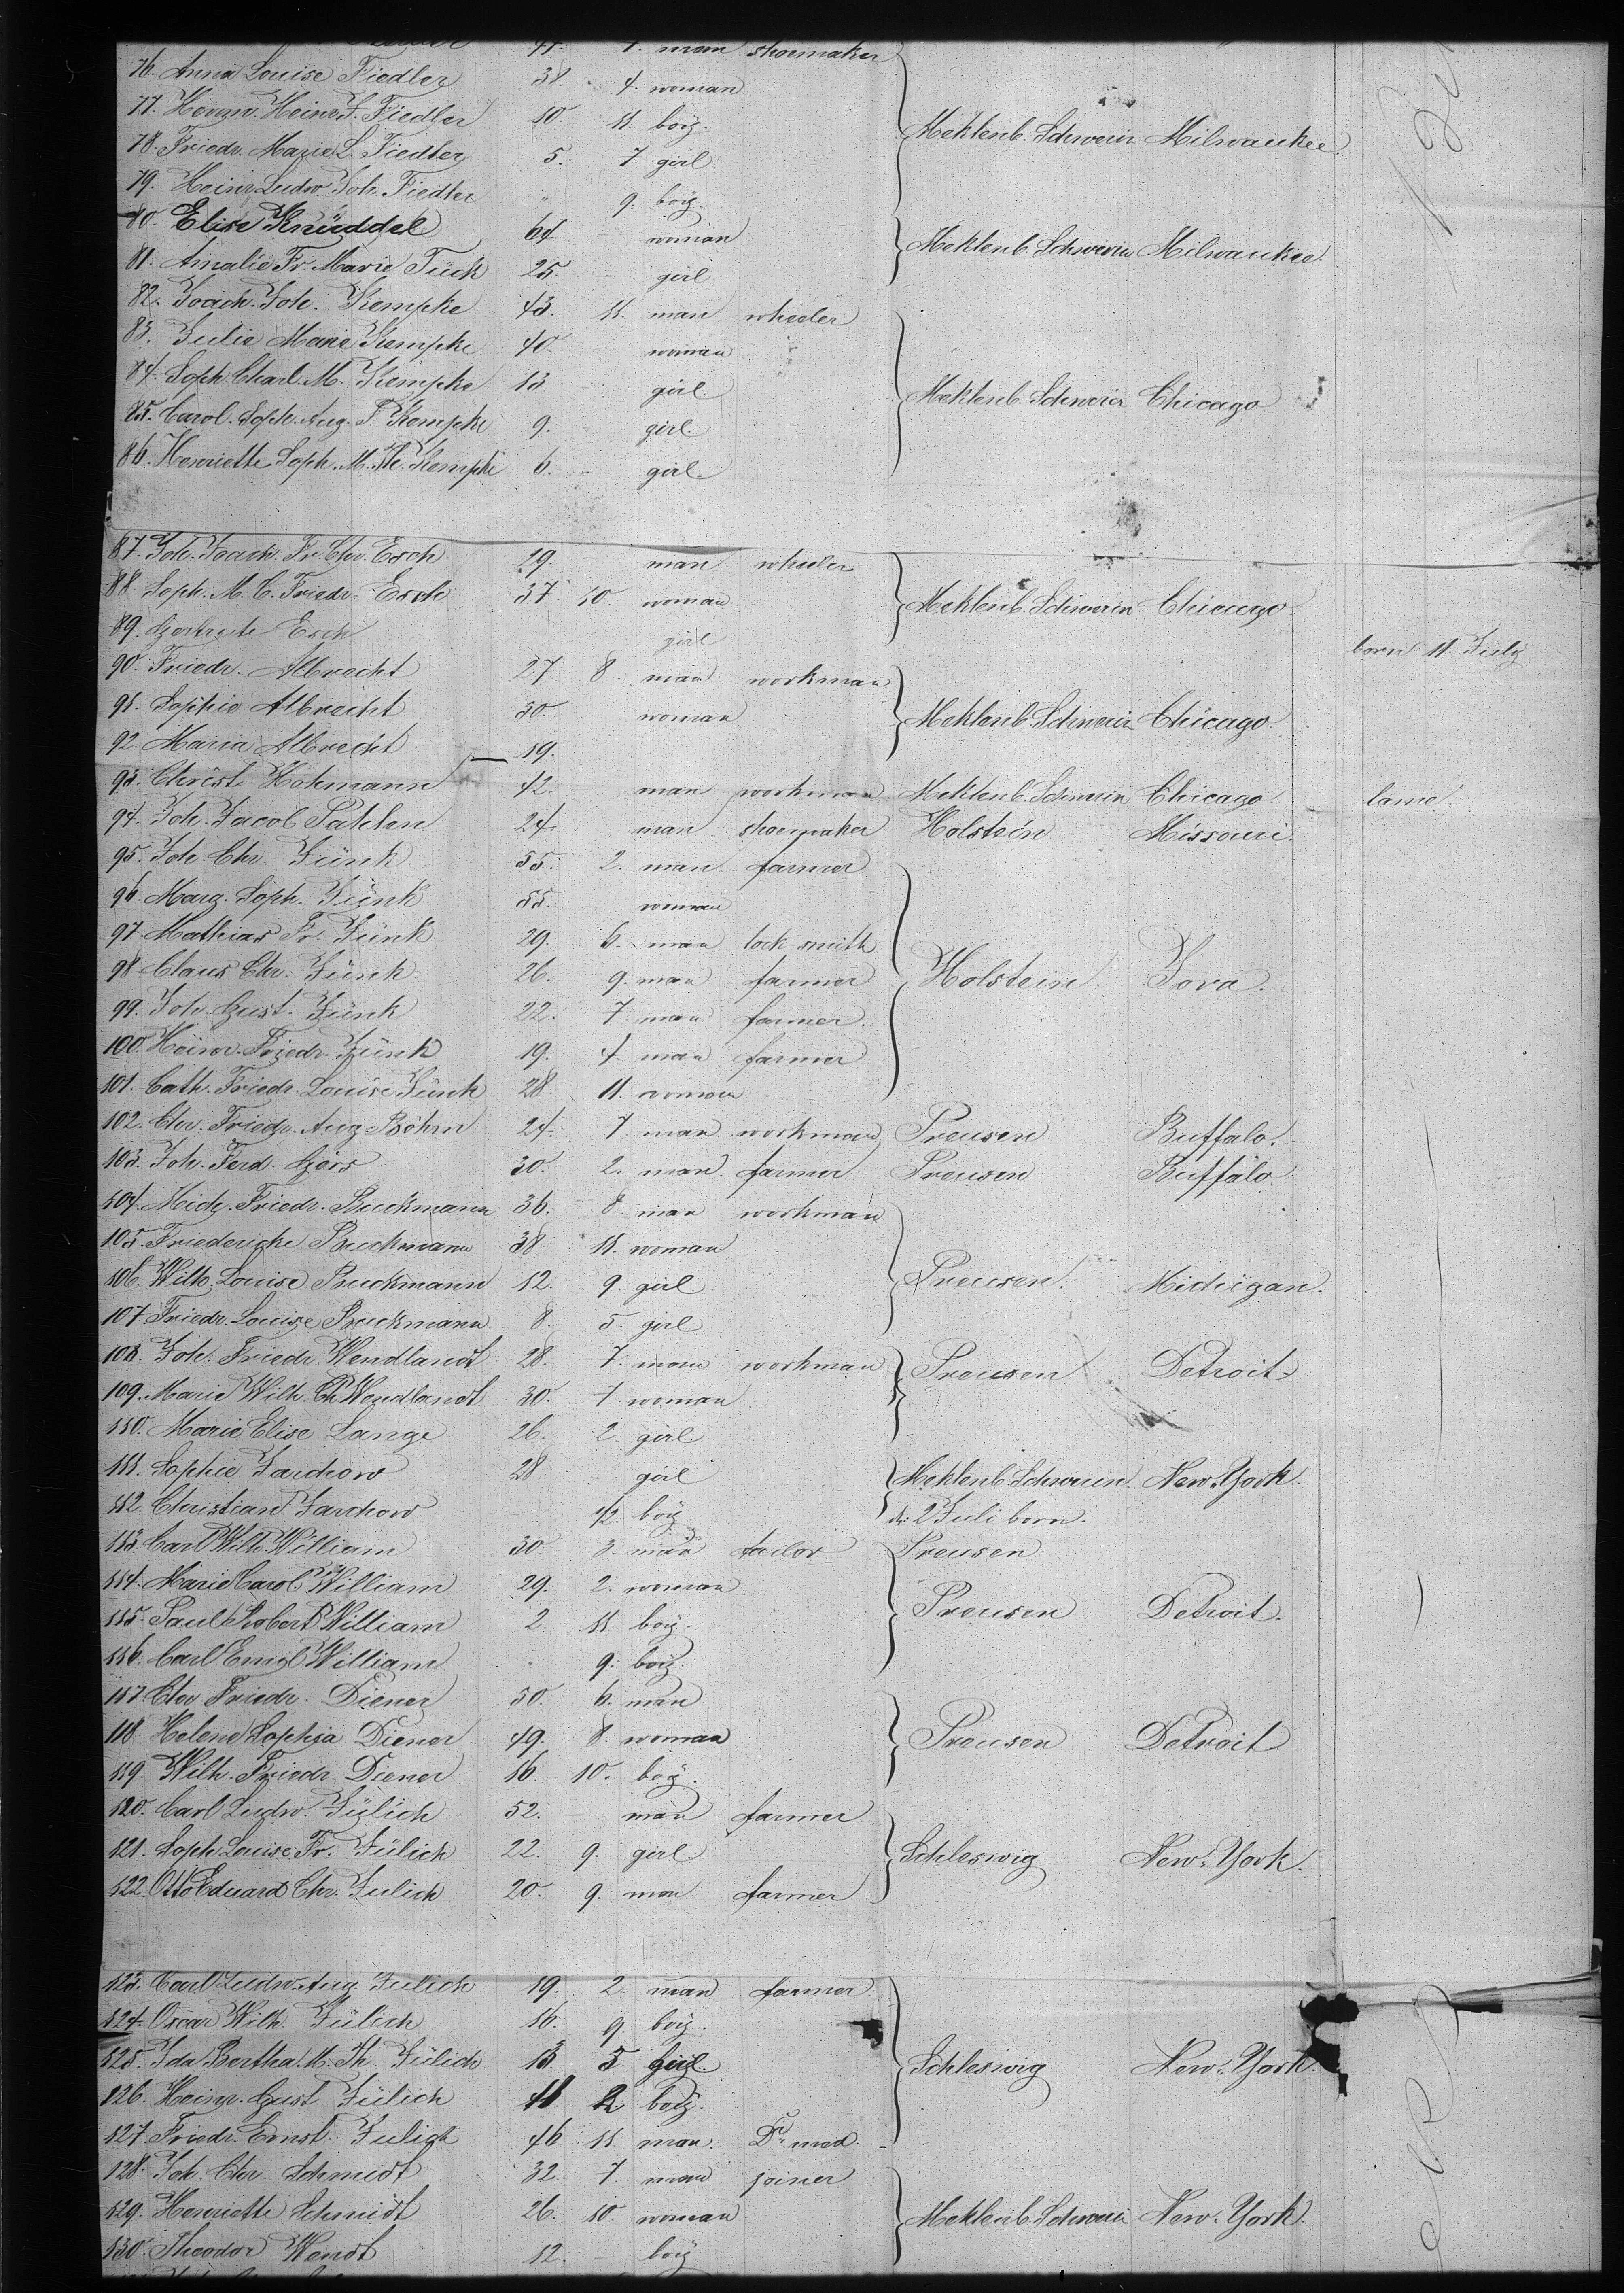 41. 7. man shoemaker
76. Anna Louise Fiedler 38. 4. woman
77. Herrm. Heinr. J. Fiedler 10. 11. boy.
78. Friedr. Marie L. Fiedler 5. 7 girl. Meklenb. Schwerin Milwaukee.
79. Heinr. Ludw. Joh. Fiedler " 9. boy.
80. Elise Knüddel 64 woman Meklenb. Schwerin Milwaukee.
81. Amalie Fr. Marie Tück 25. girl
82. Joach. Joh. Kempke 43. 11. man wheeler
83. Julie Marie Kempke 40. woman
84. Soph. Charl. M. Kempke 13 girl. Meklenb. Schwerin Chicago
85. Carol. Soph. Aug. F. Kempke 9. girl.
86. Henriette Soph. M. Th. Kempke 6. girl.
87. Joh. Joach. Fr. Chr. Esch 29. man wheeler
88. Soph. M. C. Friedr. Esch 37 10. woman Meklenb. Schwerin Chicago.
89. Esch girl born 11. July
90. Friedr. Albrecht 27 8. man workman
91. Sophie Albrecht 30. woman Meklenb. Schwerin Chicago.
92. Maria Albrecht 19.
93. Christ Hohmann 42. man workman Meklenb. Schwerin Chicago lame.
94. Joh. Jacob Pahlen 24. man shoemaker Holstein Missouri.
95. Joh. Chr. Jünk 55. 2. man farmer
96. Marg. Soph. Jünk 55. woman
97. Mathias Fr. Jünk 29. 6. man lock smith
98. Claus Chr. Jünk 26. 9. man farmer Holstein. Jova.
99. Joh. Gust. Jünk 22. 7 man farmer.
100. Heinr. Friedr. Jünk 19. 4. man farmer
101. Cath. Friedr. Louise Jünk 28 11. woman
102. Chr. Friedr. Aug. Böhm 24. 7. man workman Preusen Buffalo.
103. Joh. Ferd. Görs 30. 2. man farmer Preusen Buffalo.
104. Mich. Friedr. Buckmann 36. 8 man workman
105. Friedericke Buckmann 38 11. woman
106. Wilh. Louise Buckmann 12. 9. girl Preusen. Michigan.
107. Friedr. Louise Buckmann 8. 5. girl
108. Joh. Friedr. Wendlandt 28. 7. man workman Preusen Detroit.
109. Marie Wilh. Ch. Wendlandt 30. 7 woman
110. Marie Elise Lange 26. 2. girl
111. Sophie Jarchow 28 girl Meklenb. Schwerin. New-York.
112. Christian Jarchow 1/2. boy 2 Juli born.
113. Carl Wilh. William 30. 3. man tailor Preusen
114. Marie Carol. William 29. 2. woman
115. Paul Robert William 2. 11. boy. Preusen Detroit.
116. Carl Emil William 9. boy.
117. Chr Friedr. Diener 50. 6. man
118. Helene Sophia Diener 49. 8. woman Preusen Detroit
119. Wilh. Friedr. Diener 16. 10. boy.
120. Carl Ludw. Jülich 52. man farmer
121. Soph. Louise Fr. Jülich 22. 9. girl Schleswig New-York.
122. Otto Eduard Chr. Julich 20. 9. man farmer
123. Carl Ludw. Aug. Julich 19. 2. man farmer.
124. Oscar Wilh. Jülich 16. 9. boy.
125. Ida Bertha. M. Th. Jülich 13. 5 girl. Schleswig New-York.
126. Heinr. Gust Jülich 11. 2 boy.
127. Friedr. Ernst. Julich 46 11. man. Dr. med.
128. Joh. Chr. Schmidt 32. 7. man joiner
129. Henriette Schmidt 26. 10. woman Meklenb. Schwerin New-York.
130. Theodor Wendt 12. boy